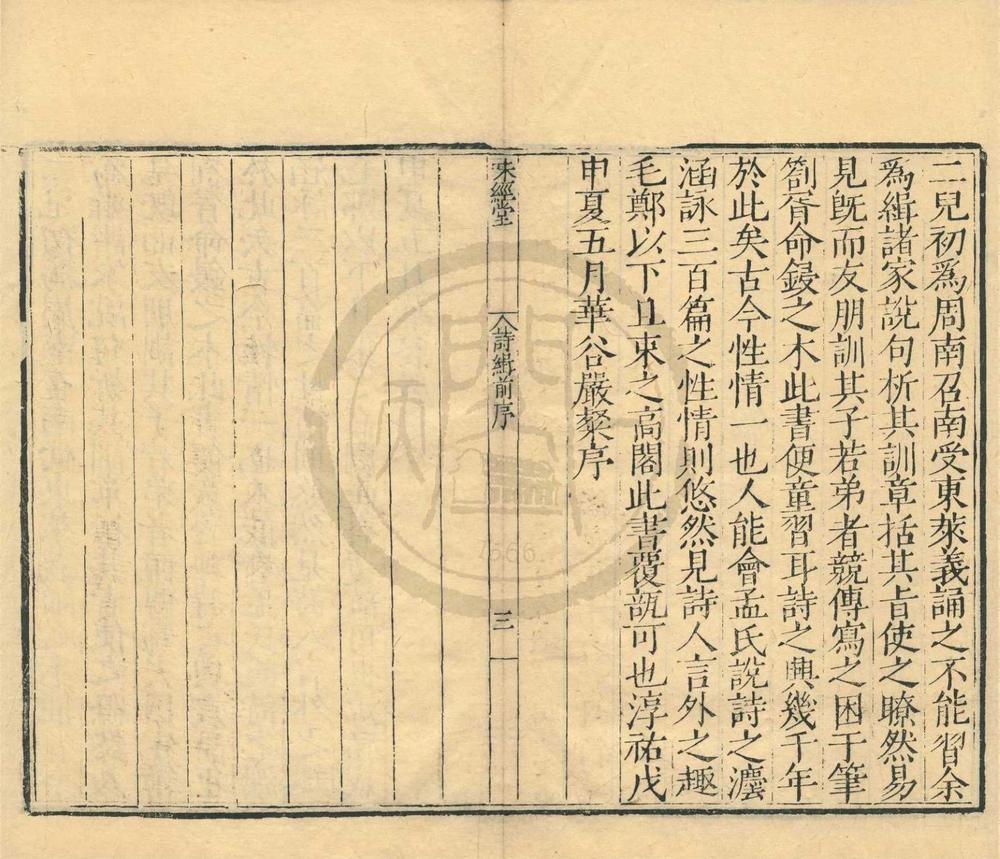 二兒初爲周南召南受東萊義誦之不能習余
爲緝諸家說句析其訓章括其旨使之瞭然易
見旣而友朋訓其子若弟者競傳寫之困于筆
劄胥命鋟之木此書便童習耳詩之興幾千年
於此矣古今性情一也人能會孟氏說詩之灋
涵詠三百篇之性情則悠然見詩人言外之趣
毛鄭以下且束之高閣此書覆瓿可也淳祐戊
申夏五月華谷嚴粲序
味經堂
詩緝前序
三
1566